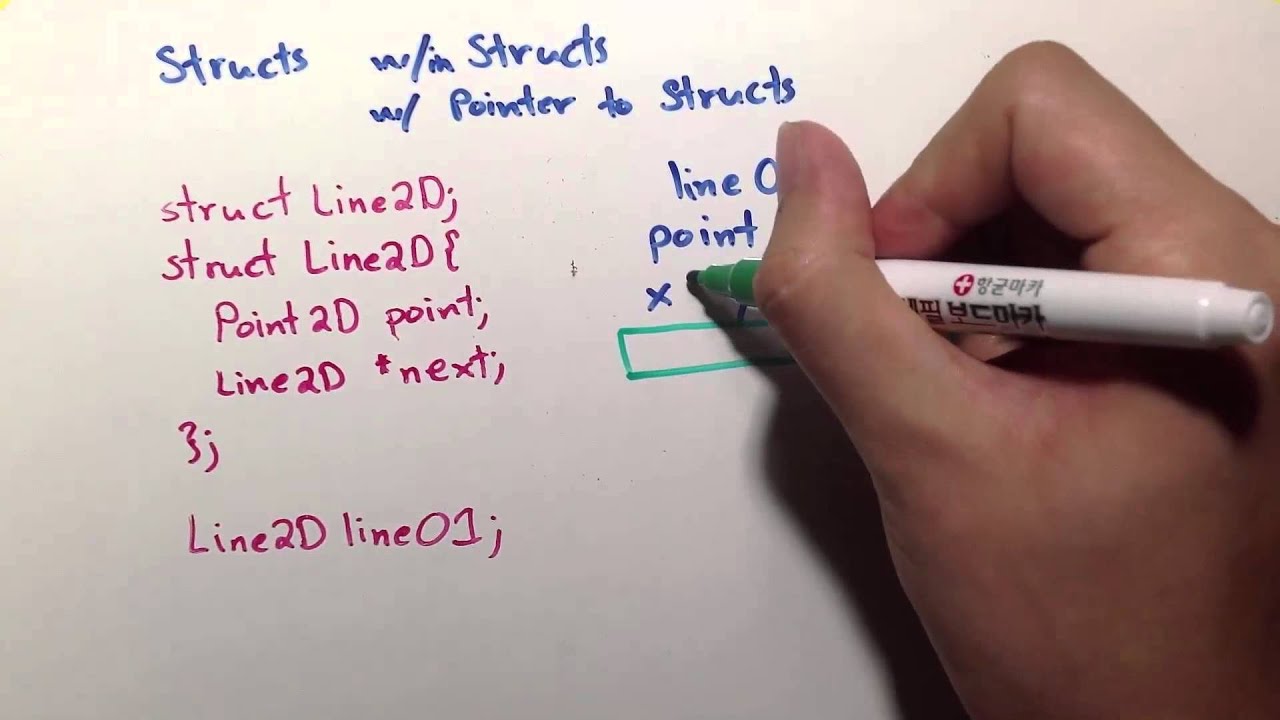 Structs w/in Structs
w/ Pointer to Structs
struct Line2D;
struct Line2D{
Point2D point;
Line2D *next;
};
Line2D line01;
line0
point
x
항균마카
보드마카